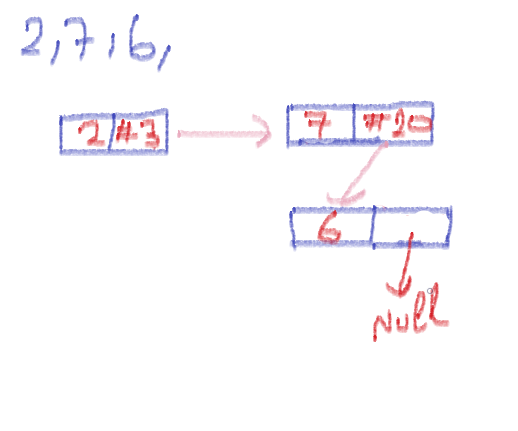 2,7,6,
2 #3
7 #20
6
Null